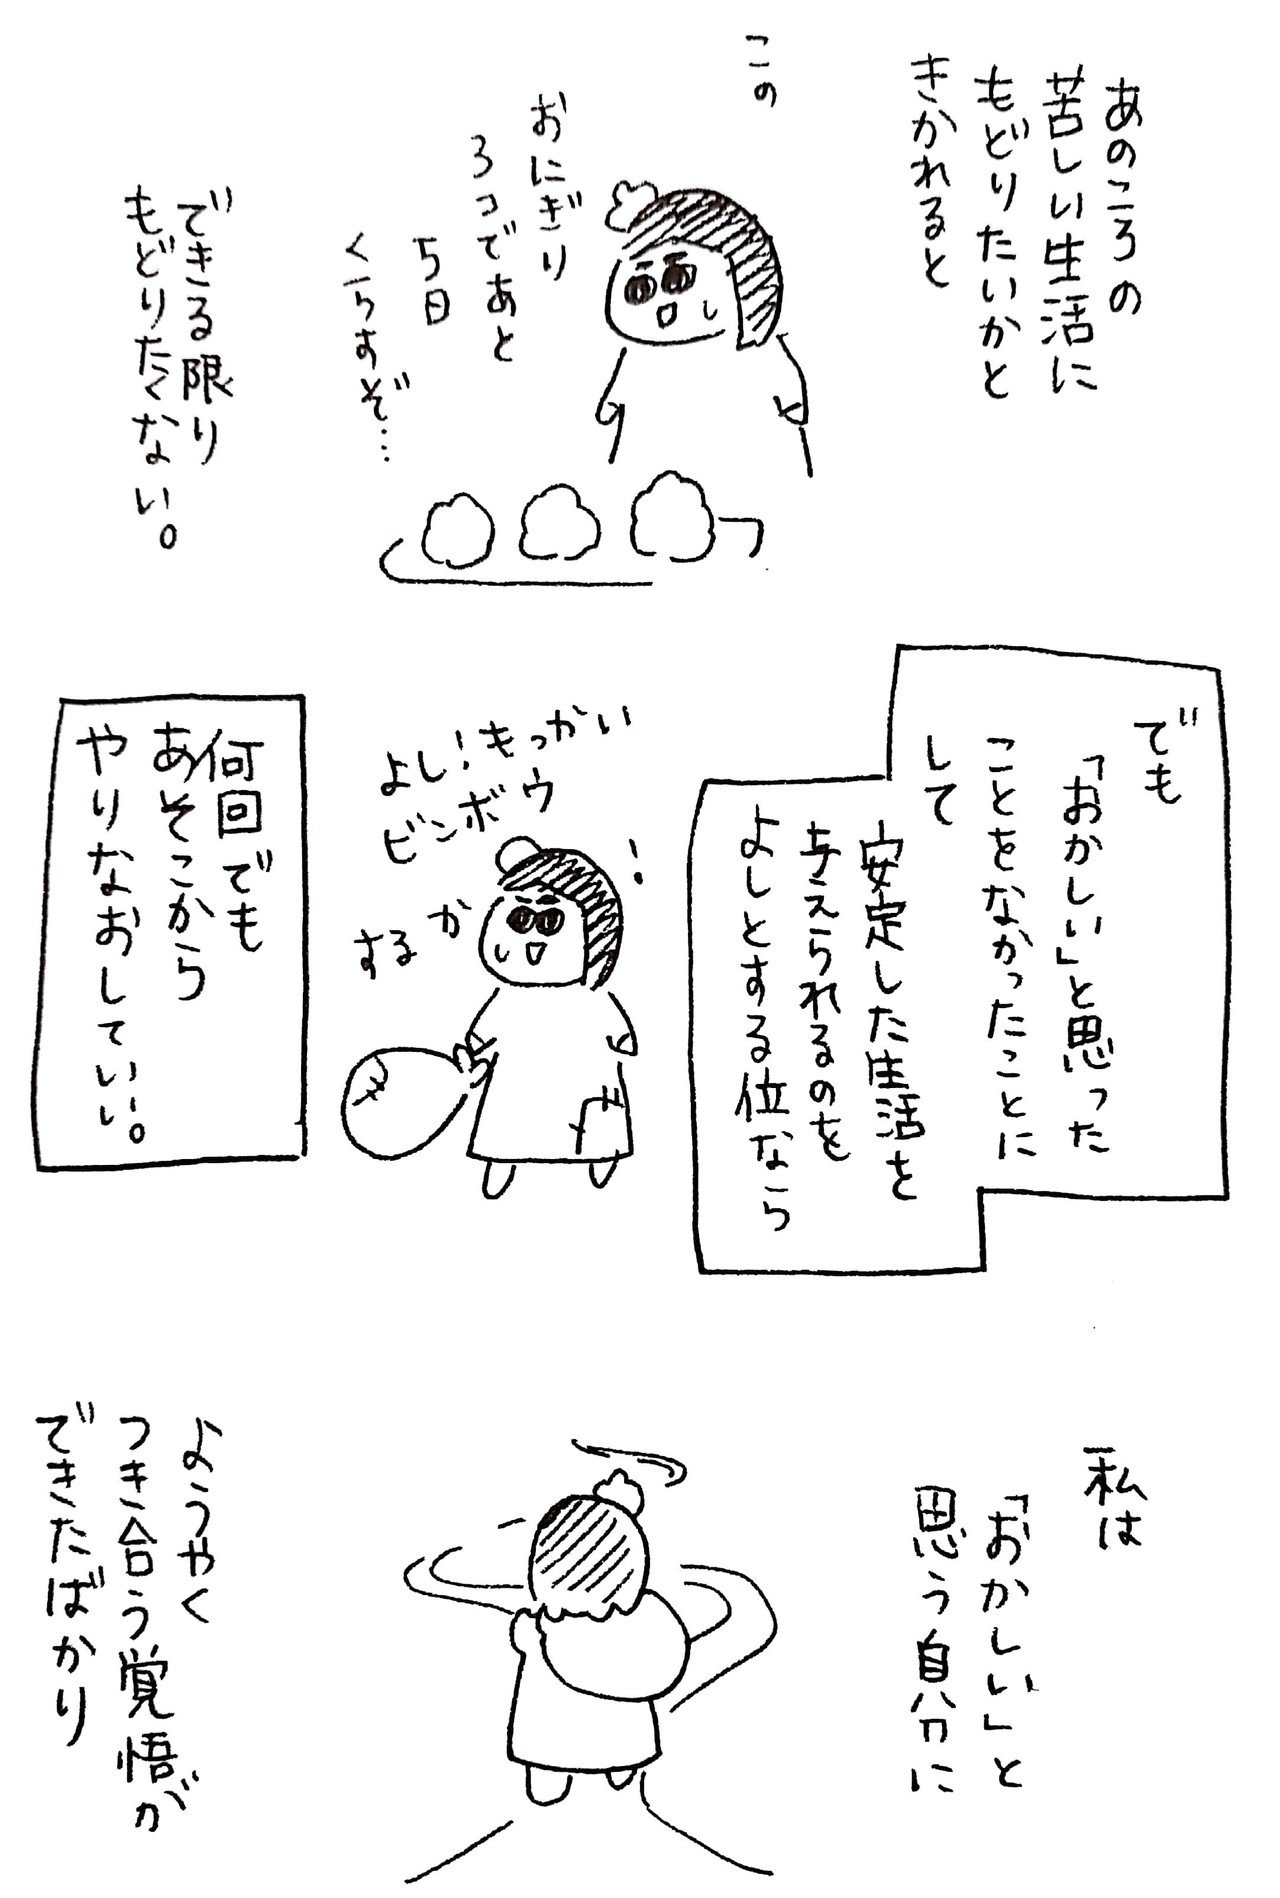 あのころの
苦しい生活に
もどりたいかと
きかれると
この
おにぎり
3コであと
5日
くらすぞ…
できる限り
もどりたくない。
でも
「おかしい」と思った
ことをなかったことに
して
安定した生活を
与えられるのを
よしとする位なら
よし！もっかい
ビンボウ
するか
！
何回でも
あそこから
やりなおしていい。
私は
「おかしい」と
思う自分に
ようやく
つき合う覚悟が
できたばかり